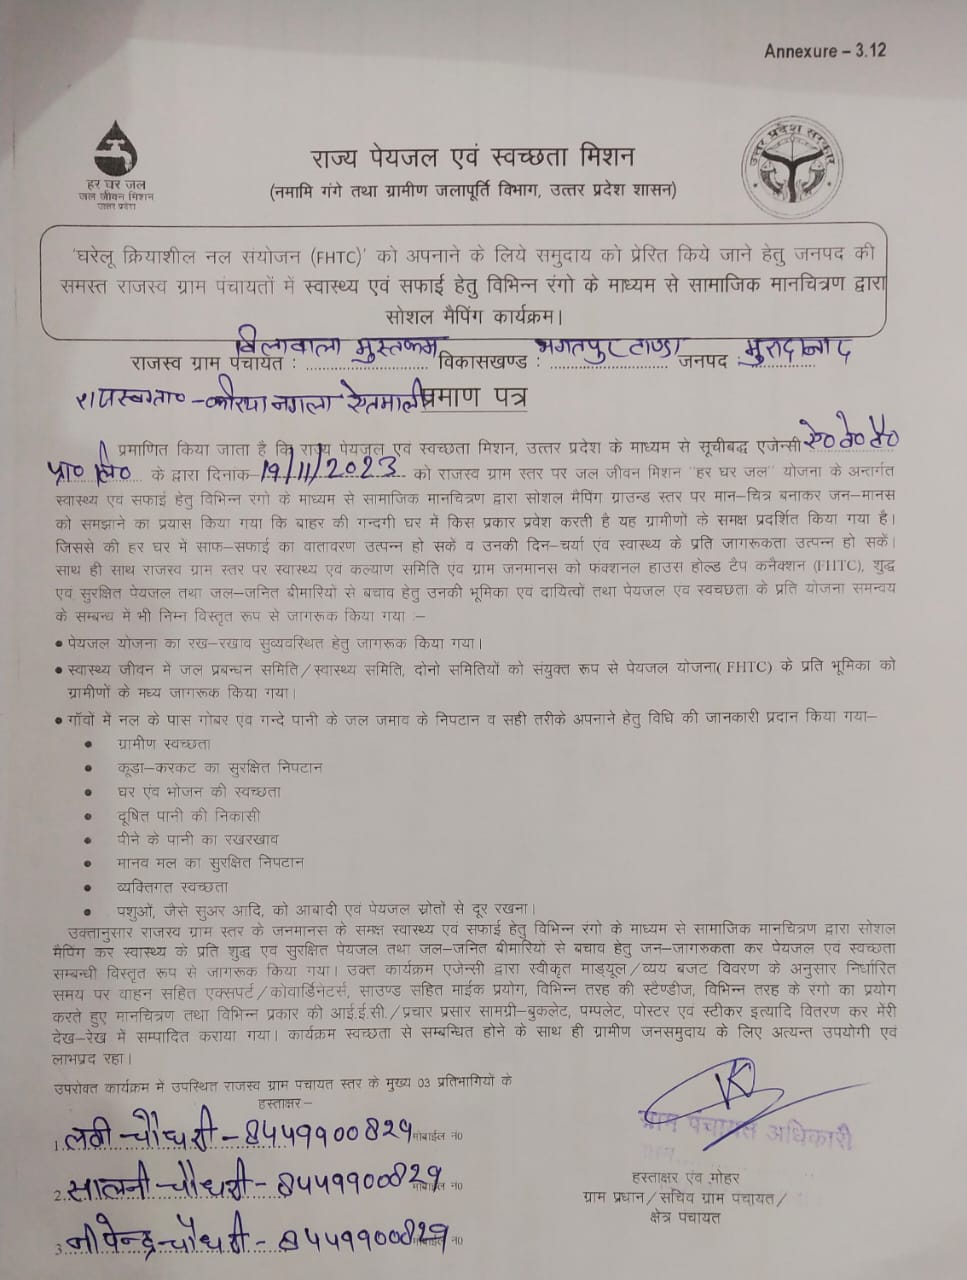 Annexure – 3.12
हर घर जल
जल जीवन मिशन
उत्तर प्रदेश
उत्तर प्रदेश सरकार
राज्य पेयजल एवं स्वच्छता मिशन
(नमामि गंगे तथा ग्रामीण जलापूर्ति विभाग, उत्तर प्रदेश शासन)
'घरेलू क्रियाशील नल संयोजन (FHTC)' को अपनाने के लिये समुदाय को प्रेरित किये जाने हेतु जनपद की
समस्त राजस्व ग्राम पंचायतों में स्वास्थ्य एवं सफाई हेतु विभिन्न रंगो के माध्यम से सामाजिक मानचित्रण द्वारा
सोशल मैपिंग कार्यक्रम।
राजस्व ग्राम पंचायत : विलावाला मुस्तकम विकासखण्ड : भगतपुर टाण्डा जनपद मुरादाबाद
राजस्व ग्रा० - नगला प्रमाण पत्र
प्रमाणित किया जाता है कि राज्य पेयजल एवं स्वच्छता मिशन, उत्तर प्रदेश के माध्यम से सूचीबद्ध एजेन्सी
प्रा० लि० के द्वारा दिनांक-19/11/2023 को राजस्व ग्राम स्तर पर जल जीवन मिशन "हर घर जल" योजना के अन्तर्गत
स्वास्थ्य एवं सफाई हेतु विभिन्न रंगो के माध्यम से सामाजिक मानचित्रण द्वारा सोशल मैपिंग ग्राउन्ड स्तर पर मान–चित्र बनाकर जन–मानस
को समझाने का प्रयास किया गया कि बाहर की गन्दगी घर में किस प्रकार प्रवेश करती है यह ग्रामीणों के समक्ष प्रदर्शित किया गया है।
जिससे की हर घर में साफ–सफाई का वातावरण उत्पन्न हो सकें व उनकी दिन–चर्या एंव स्वास्थ्य के प्रति जागरूकता उत्पन्न हो सकें।
साथ ही साथ राजस्व ग्राम स्तर पर स्वास्थ्य एवं कल्याण समिति एंव ग्राम जनमानस को फक्शनल हाउस होल्ड टैप कनैक्शन (FHTC), शुद्ध
एवं सुरक्षित पेयजल तथा जल–जनित बीमारियों से बचाव हेतु उनकी भूमिका एवं दायित्वों तथा पेयजल एवं स्वच्छता के प्रति योजना समन्वय
के सम्बन्ध में भी निम्न विस्तृत रूप से जागरूक किया गया :–
• पेयजल योजना का रख–रखाव सुव्यवस्थित हेतु जागरूक किया गया।
• स्वास्थ्य जीवन में जल प्रबन्धन समिति/स्वास्थ्य समिति, दोनो समितियों को संयुक्त रूप से पेयजल योजना( FHTC) के प्रति भूमिका को
ग्रामीणों के मध्य जागरूक किया गया।
• गॉवों में नल के पास गोबर एंव गन्दे पानी के जल जमाव के निपटान व सही तरीके अपनाने हेतु विधि की जानकारी प्रदान किया गया–
• ग्रामीण स्वच्छता
• कूडा–करकट का सुरक्षित निपटान
• घर एंव भोजन की स्वच्छता
• दूषित पानी की निकासी
• पीने के पानी का रखरखाव
• मानव मल का सुरक्षित निपटान
• व्यक्तिगत स्वच्छता
• पशुओं, जैसे सुअर आदि, को आबादी एवं पेयजल स्रोतों से दूर रखना।
उक्तानुसार राजस्व ग्राम स्तर के जनमानस के समक्ष स्वास्थ्य एवं सफाई हेतु विभिन्न रंगों के माध्यम से सामाजिक मानचित्रण द्वारा सोशल
मैपिंग कर स्वास्थ्य के प्रति शुद्ध एवं सुरक्षित पेयजल तथा जल–जनित बीमारियों से बचाव हेतु जन–जागरुकता कर पेयजल एवं स्वच्छता
सम्बन्धी विस्तृत रूप से जागरूक किया गया। उक्त कार्यक्रम एजेन्सी द्वारा स्वीकृत माड्यूल/व्यय बजट विवरण के अनुसार निर्धारित
समय पर वाहन सहित एक्सपर्ट/कोवार्डिनेटर्स, साउण्ड सहित माईक प्रयोग, विभिन्न तरह की स्टैण्डीज, विभिन्न तरह के रंगो का प्रयोग
करते हुए मानचित्रण तथा विभिन्न प्रकार की आई.ई.सी./प्रचार प्रसार सामग्री–बुकलेट, पम्पलेट, पोस्टर एवं स्टीकर इत्यादि वितरण कर मेरी
देख–रेख में सम्पादित कराया गया। कार्यक्रम स्वच्छता से सम्बन्धित होने के साथ ही ग्रामीण जनसमुदाय के लिए अत्यन्त उपयोगी एवं
लाभप्रद रहा।
उपरोक्त कार्यक्रम में उपस्थित राजस्व ग्राम पंचायत स्तर के मुख्य 03 प्रतिभागियों के
हस्ताक्षर–
1. लवी चौधरी - 8449900829 मोबाईल नं0
2. चौधरी - 8449900829 मोबाईल नं0
3. चौधरी - 8449900829 मोबाईल नं0
ग्राम पंचायत अधिकारी
हस्ताक्षर एंव मोहर
ग्राम प्रधान/सचिव ग्राम पंचायत/
क्षेत्र पंचायत